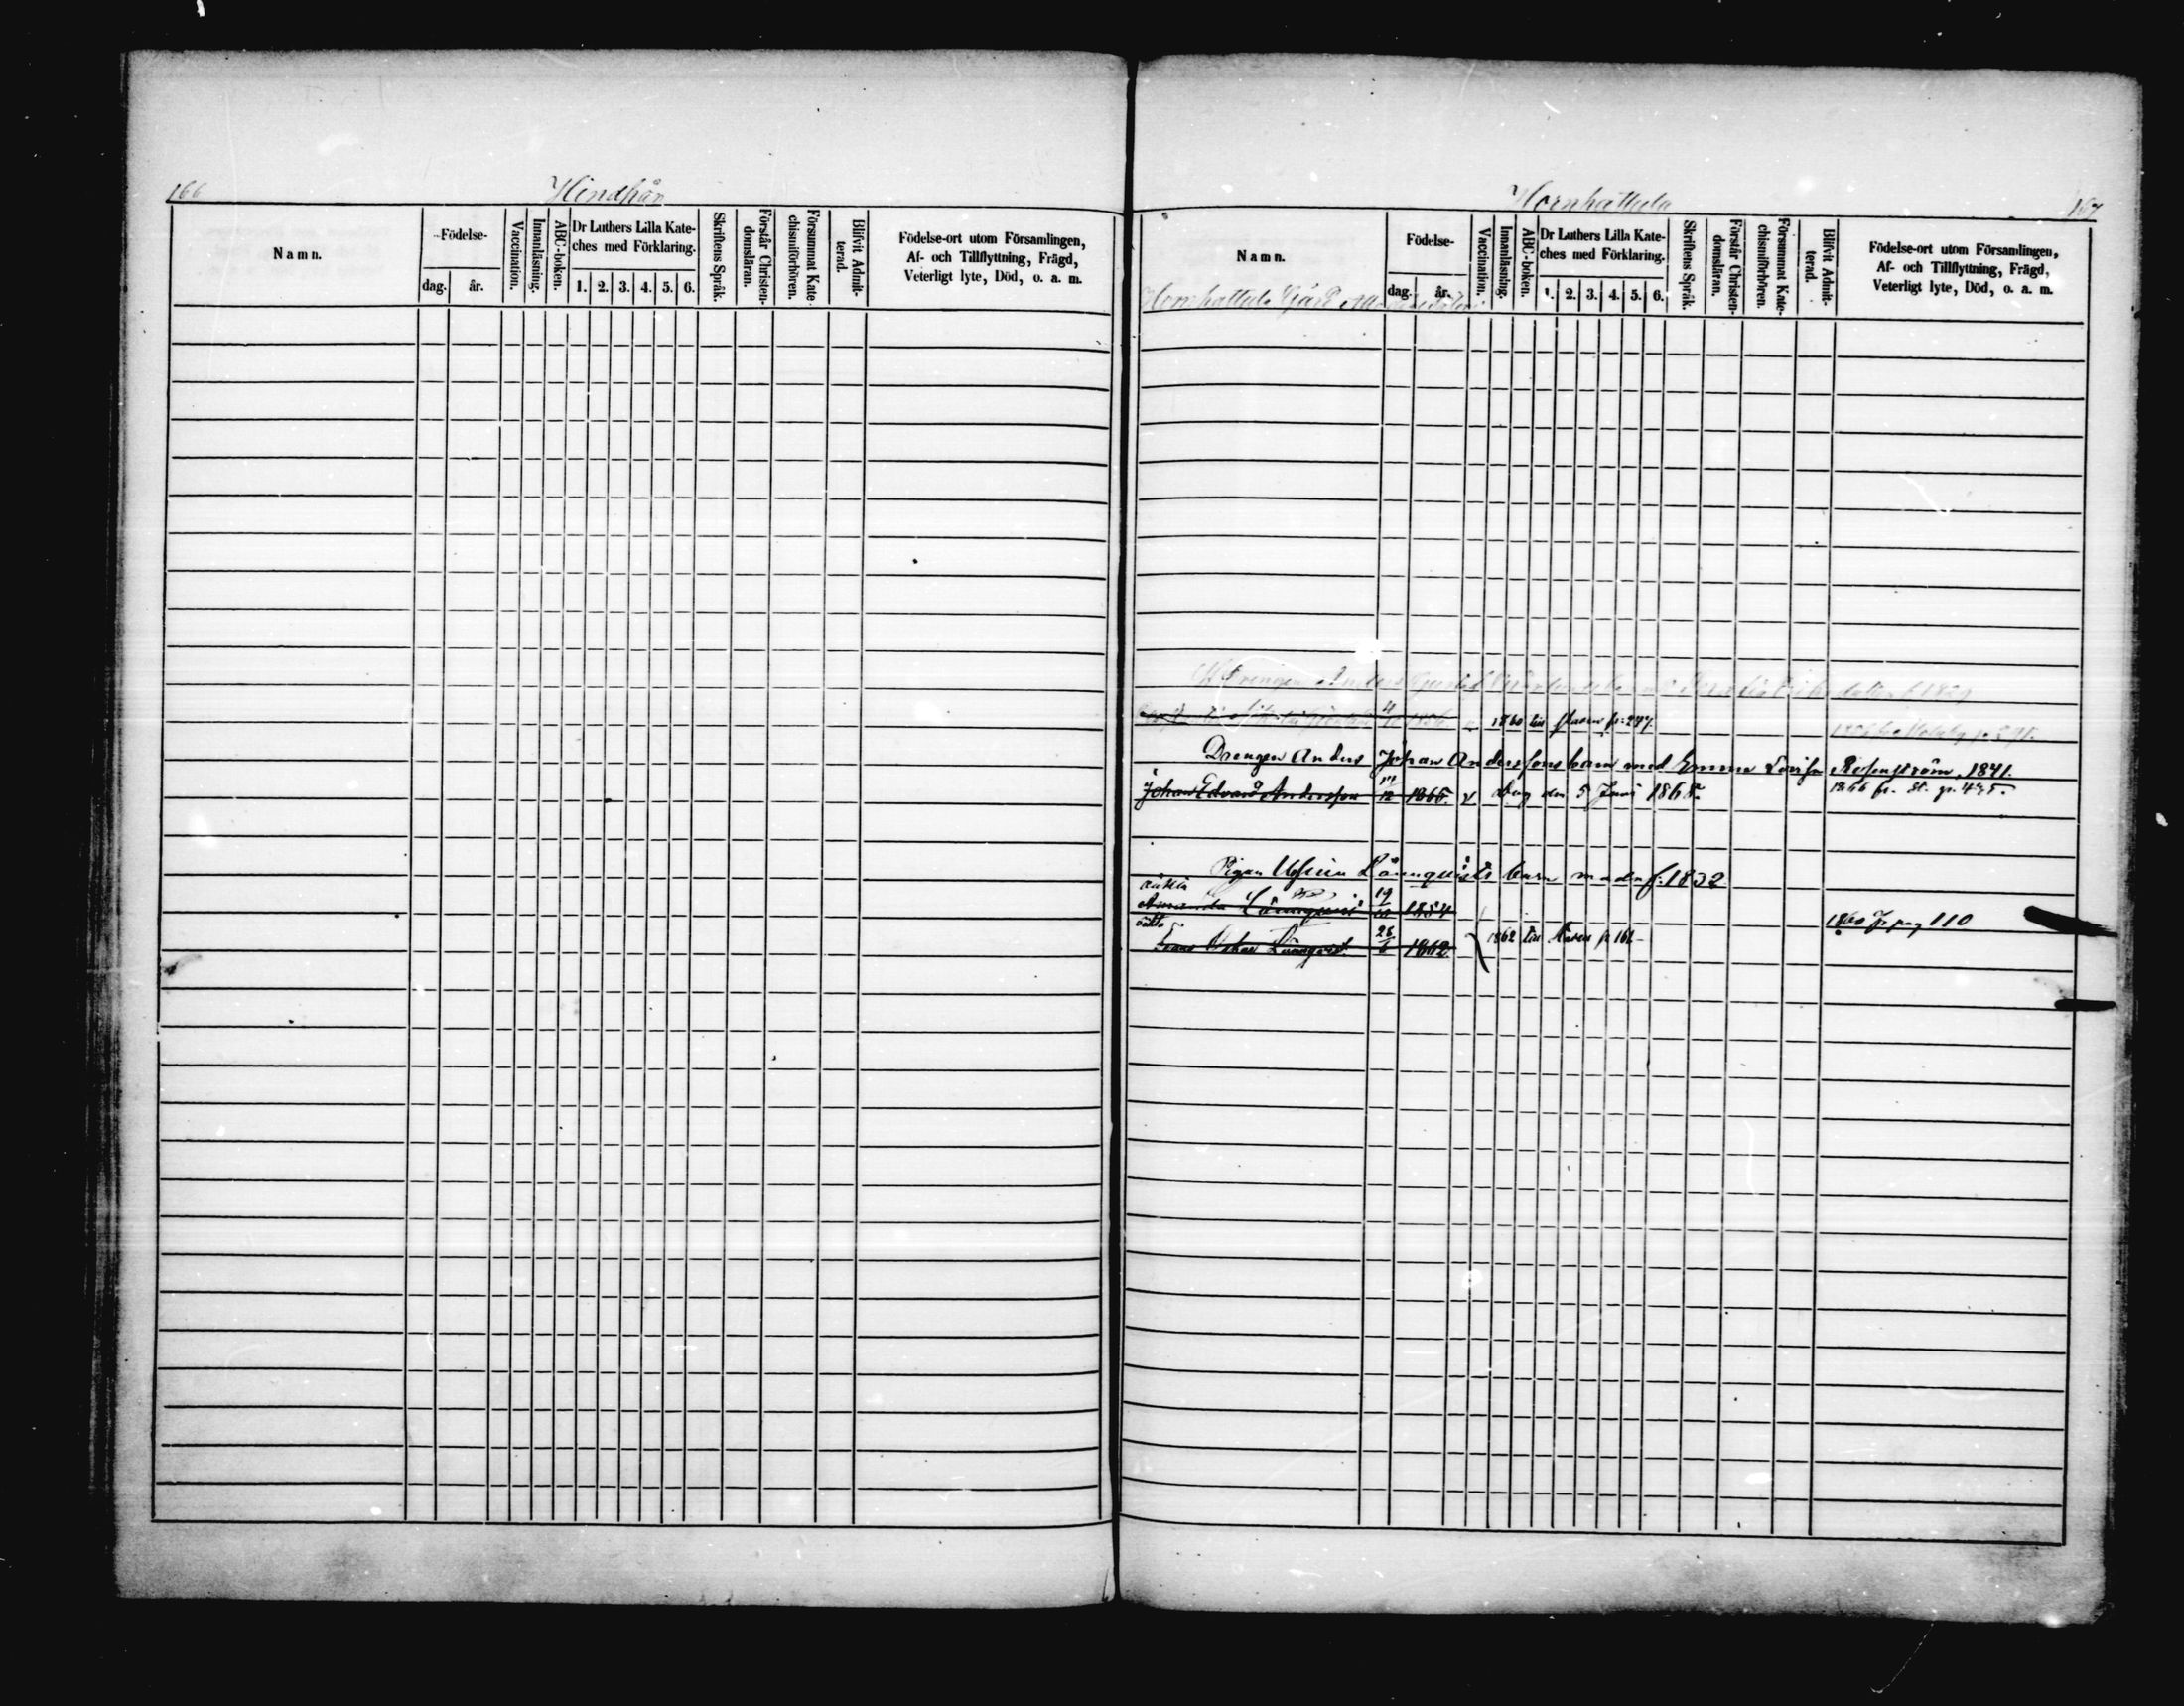 166
Hindhår
Namn.
Födelse-
dag. år.
Vaccination.
Innanläsning.
ABC-boken.
Dr Luthers Lilla Kate-
ches med Förklaring.
1. 2. 3. 4. 5. 6.
Skriftens Språk.
Förstår Christen-
domsläran.
Försummat Kate-
chismiförhören.
Blifvit Admit-
terad.
Födelse-ort utom Församlingen,
Af- och Tillflyttning, Frägd,
Veterligt lyte, Död, o. a. m.
Hornhattula
167
Namn.
Födelse-
dag. år.
Vaccination.
Innanläsning.
ABC-boken.
Dr Luthers Lilla Kate-
ches med Förklaring.
1. 2. 3. 4. 5. 6.
Skriftens Språk.
Förstår Christen-
domsläran.
Försummat Kate-
chismiförhören.
Blifvit Admit-
terad.
Födelse-ort utom Församlingen,
Af- och Tillflyttning, Frägd,
Veterligt lyte, Död, o. a. m.
Hornhattula Gård
Drengen Anders Gustaf
1860 till p: 277.
Drengen Anders Johan Anderssons barn med Emma Lovisa Rosenström, 1841.
Johan Edvard Andersson 14/12 1865. v Dog den 5 Juni 1868. 1866 fr. st. p. 475.
Pigan Lönnqvists barn f: 1832
oäkta
Amanda Lönnqvist 19/10 1854 1860 fr pag 110
oäkta
Frans Oskar Lönnqvist. 26/6 1862. 1862 till p 162